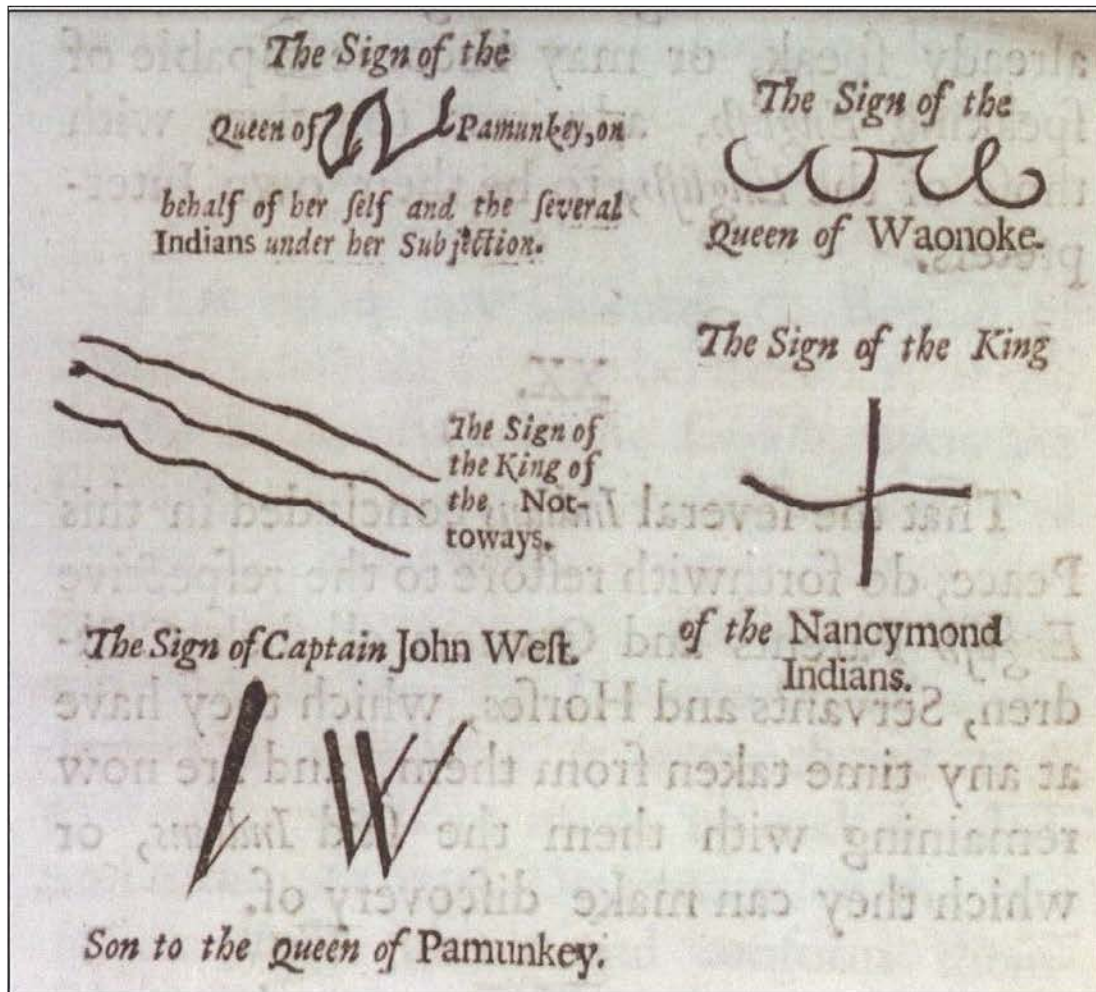 The Sign of the
Queen of Pamunkey, on
behalf of her ſelf and the ſeveral
Indians under her Subjection.
The Sign of the
Queen of Waonoke.
The Sign of
the King of
the Not-
toways.
The Sign of the King
of the Nancymond
Indians.
The Sign of Captain John Weſt.
Son to the Queen of Pamunkey.